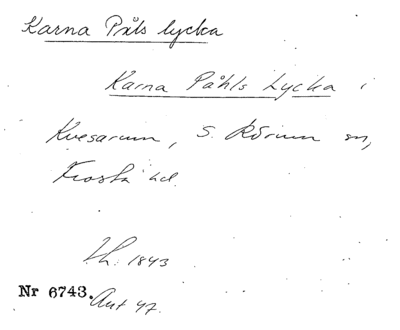 Karna Påls lycka
Karna Påhls Lycka i
Kvesarum, S. Rörum sn,
Frosta hd.
Lh. 1843
Nr 6743. Ant 47.